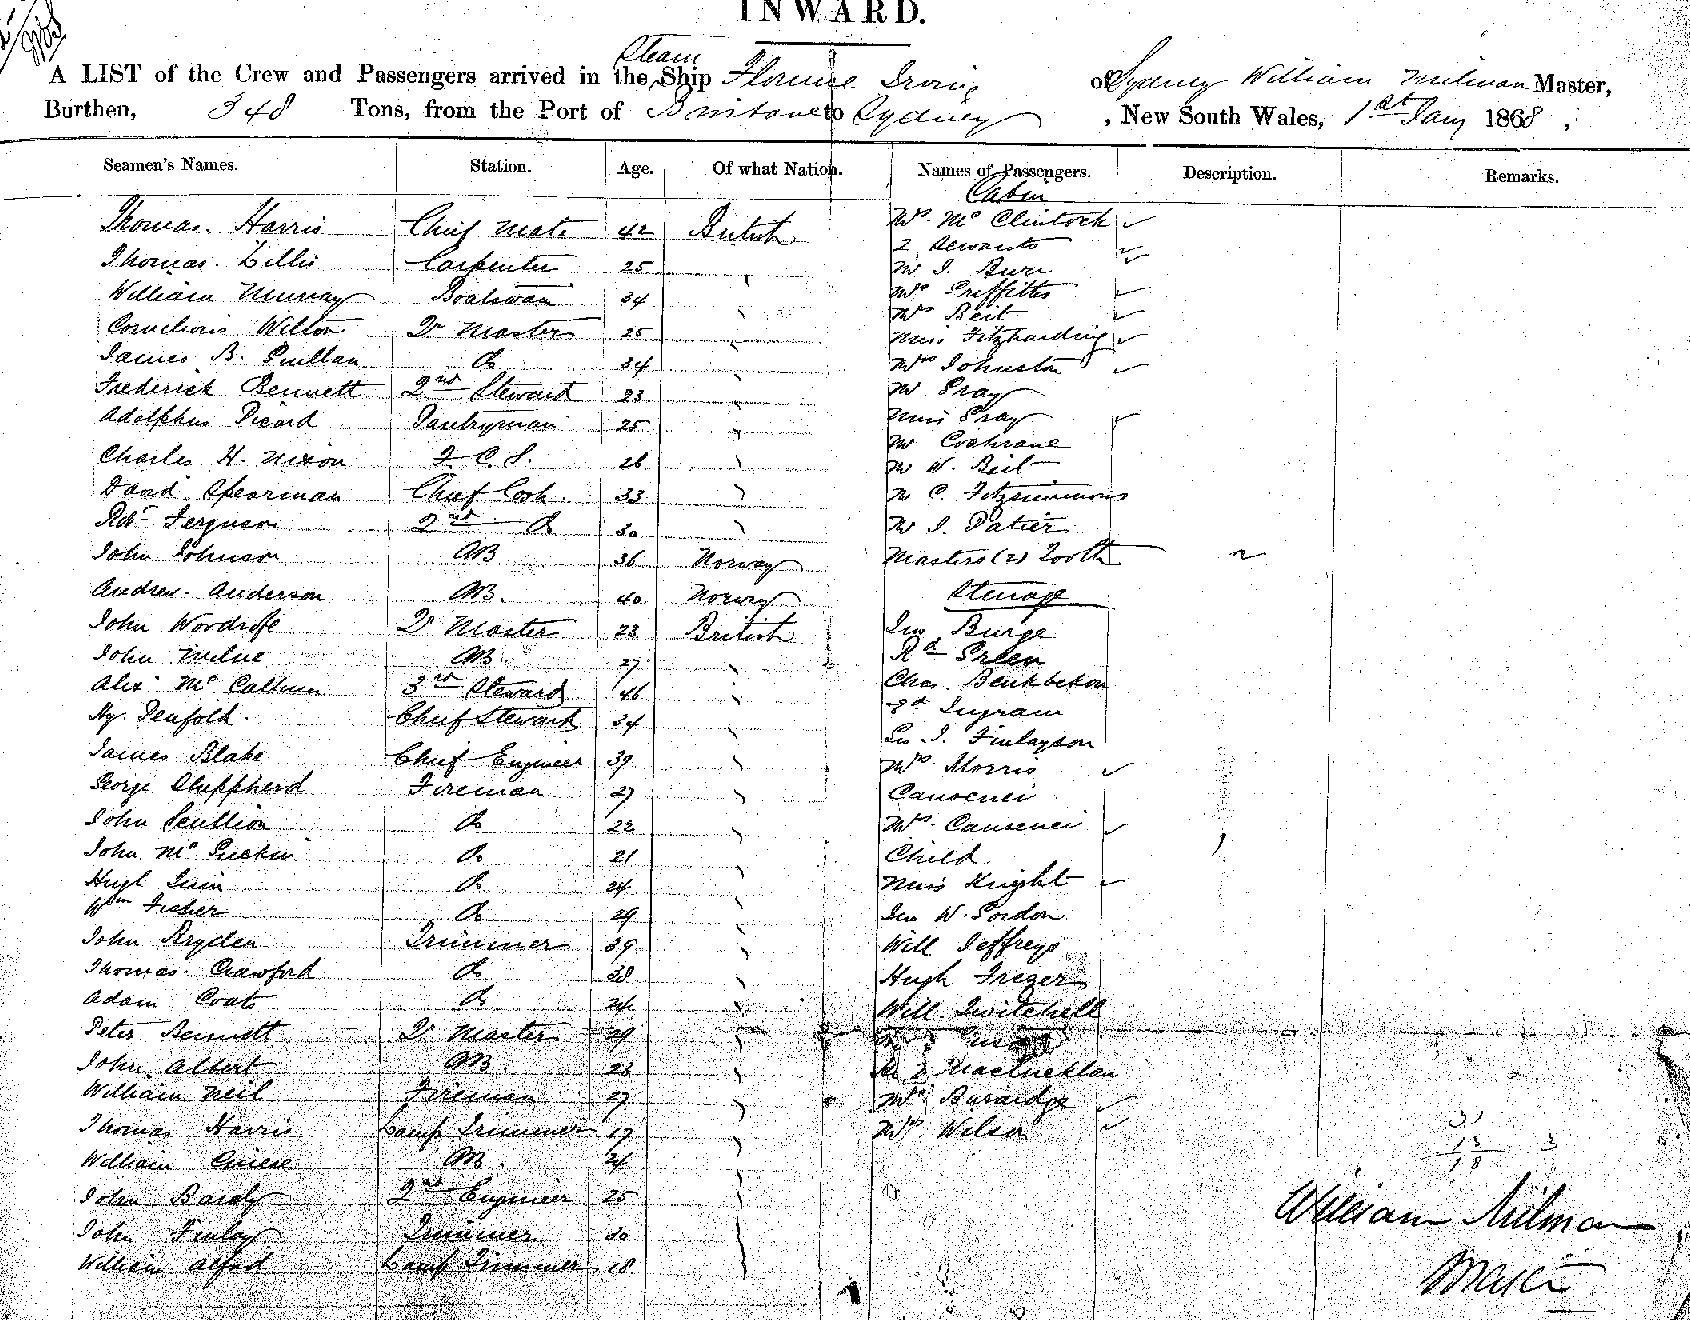 INWARD.
A LIST of the Crew and Passengers arrived in the Steam Ship Florence Irving of Sydney William Milman Master,
Burthen, 348 Tons, from the Port of Brisbane to Sydney, New South Wales, 1st Jany 1868,
Seamen's Names. Station. Age. Of what Nation. Names of Passengers. Description. Remarks.
Cabin
Thomas Harris Chief Mate 42 British Mrs McClintock
2 Servants
Thomas Lillis Carpenter 25 Mr J.
William Murray Boatswain 34 Mrs Griffiths
Mrs Beit
Cornelious Wilton Qr Master 25 Miss Fitzharding
James B. Do 34 Mrs Johnston
Frederick Bennett 2nd Steward 23 Mr Gray
Adolphus Picard Pantryman 25 Miss Gray
Mr Cochrane
Charles H. Nixon F. C. S. 26 Mr W. Beit
David Spearman Chief Cook 33 Mr C. Fitzsimmons
Robt Ferguson 2nd Do 30 Mr J.
John Johnson AB 36 Norway Masters (2) Tooth
Andrew Anderson AB. 40 Norway Steerage
John Qr Master 23 British Burge
John Milne AB. 27 Rd Green
Alex Mc Calhum 3rd Steward 46 Chas.
Hy. Penfold. Chief Steward 34 Ingram
J. Finlayson
James Blake Chief Engineer 39 Mrs Morris
George Sheppherd Fireman 27
John Scullion Do 22 Mrs
John Mc Do 21 Child
Hugh Do 24 Miss Knight
Wm Fisher Do 29 W. Gordon
John Bryden Trimmer 39 Will Jeffreys
Thomas Crawford Do 38 Hugh Frezer
Adam Coats Do 24 Will Twitchell
Peter Bennett Qr Master 29
John Albert AB 23
William Neil Fireman 27 Mrs
Thomas Harris Lamp Trimmer 17 Mrs Wilson
William AB. 24
John Bardy 2nd Engineer 25
John Finlay Trimmer 30
William Alford Lamp Trimmer 18
William Milman
Master